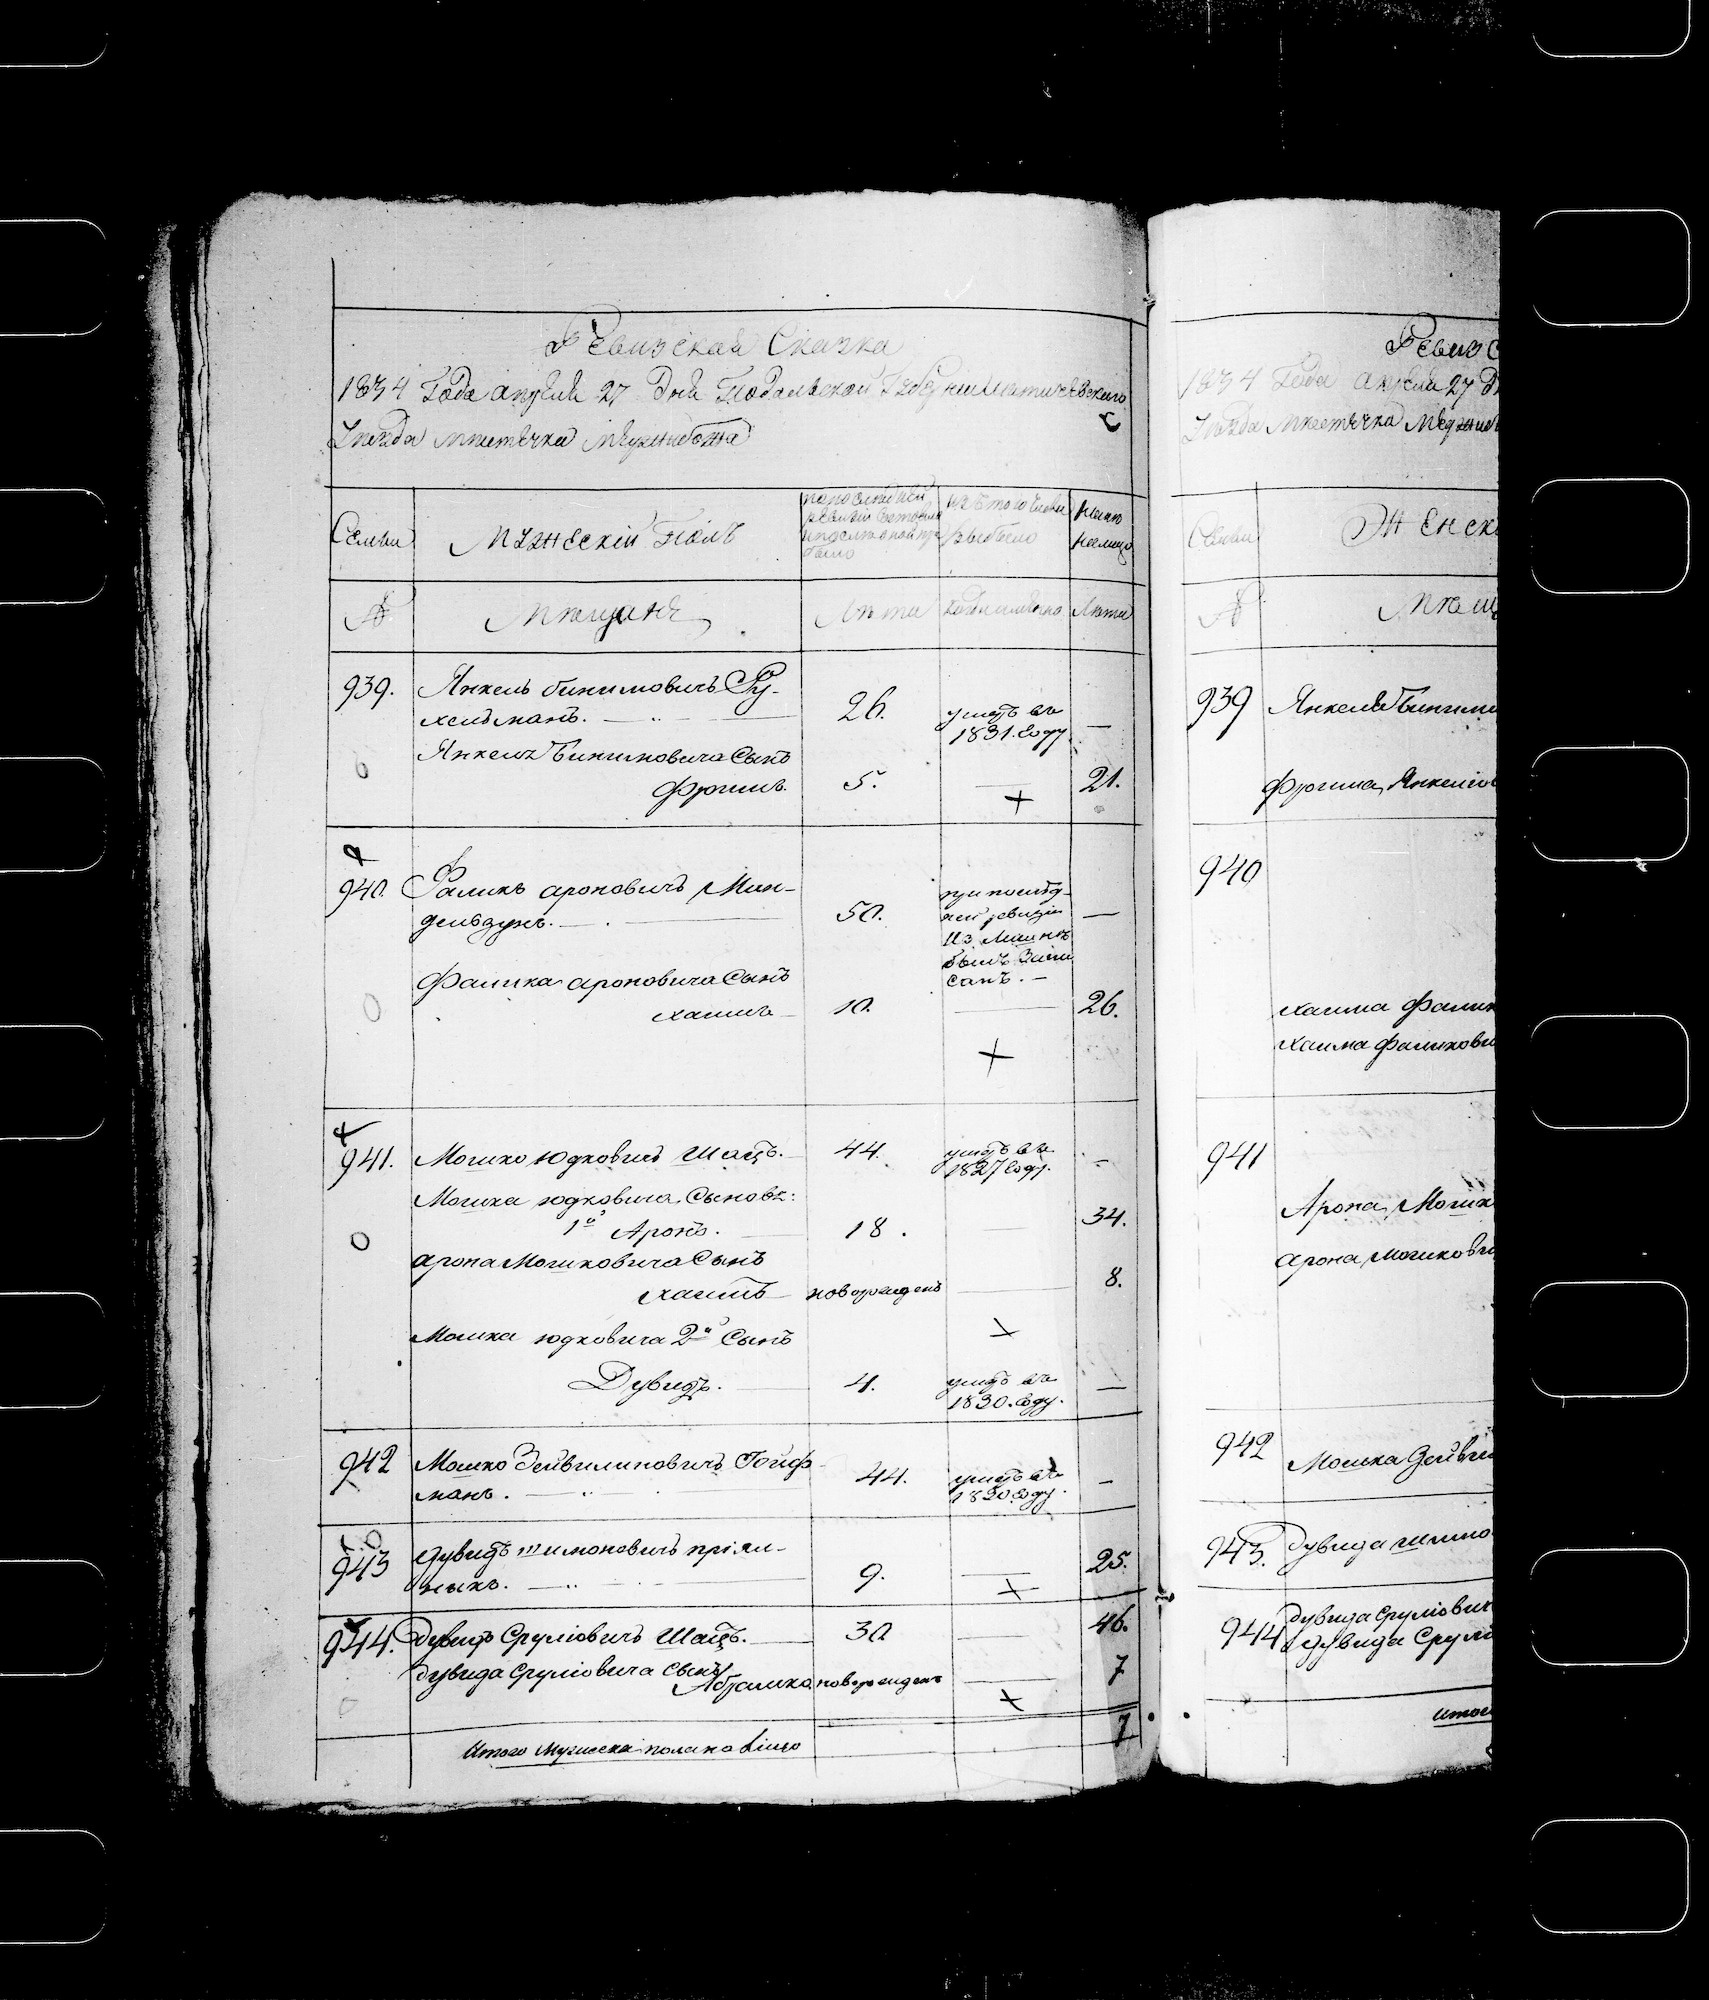 Ревизская Сказка
1834 Года апреля 27 Дня Подольской Губернии Литичевского
Уезда местечка Меджибожа
Семьи
Мужескій Полъ
по последней
ревизіи состояло
и после оной при
было
изъ того числа
выбыло
ныне
налицо
№
Мещане
Лета
когда именно
Лета
939.
Янкель Бинимовичъ Ру-
хельманъ.
26.
умеръ въ
1831. Году
—
Янкеля Бинимовича Сынъ
Фроимъ.
5.
21.
940.
Фаликъ ароновичъ Мин-
дельзунъ.
50.
при послед-
ней ревизіи
был Запи
санъ. —
—
Фалика ароновича Сынъ
хаимъ
10.
26.
941.
Мошко Юдковичъ Шацъ.
44.
умеръ въ
1827 Году.
—
Мошка юдковича Сыновья:
1й Аронъ.
18.
34.
арона Мошковича Сынъ
хаимъ
новорожденъ
8.
Мошка юдковича 2й Сынъ
Дувидъ.
4.
умеръ въ
1830. Году.
—
942
Мошко Зейвилиновичъ Гойф-
манъ.
44.
умеръ въ
1820 Году.
—
943
Дувидъ шимоновичъ пріял-
ныкъ.
9.
25.
944.
Дувидъ Сруліовичъ Шацъ.
30
46.
Дувида Сруліовича Сынъ
Абрамко новорожденъ
7
Итого Мужеска пола на лицо
7
Ревизс
1834 Года апреля 27 Дн
Уезда местечка Меджибо
Семьи
Женск
№
Мещ
939
Янкеля Биними
Фроима Янкеліов
940
хаима Фалик
хаима Фаликови
941
Арона Мошк
арона Мошкови
942
Мошка Зейвил
943.
Дувида шимо
944
Дувида Сруліович
Дувида Срулі
Итого